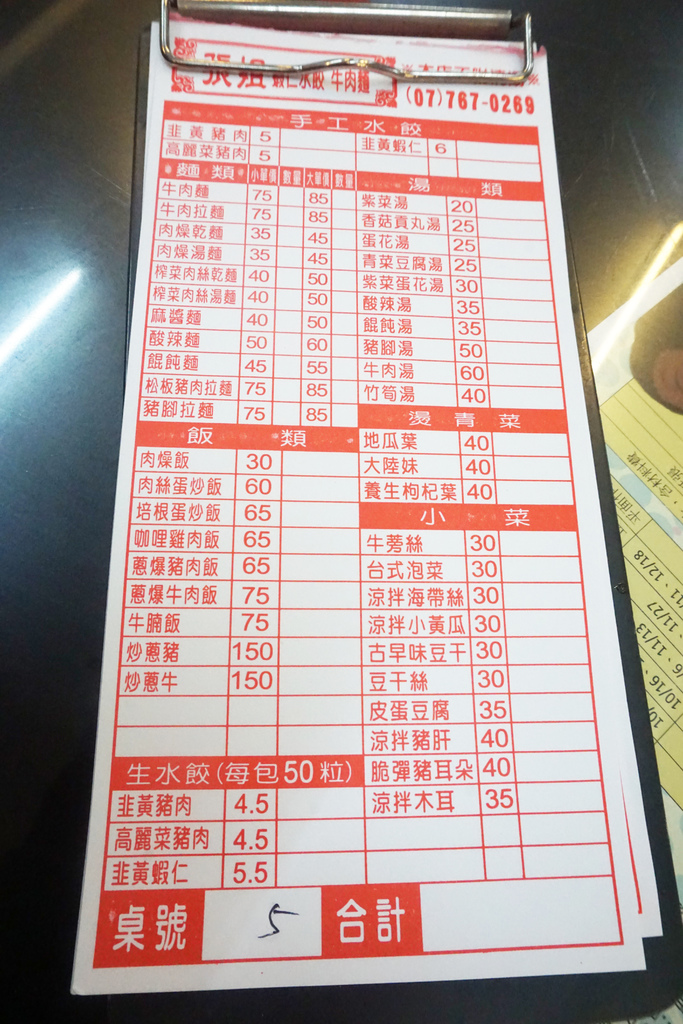 張姐 蝦仁水餃 牛肉麵
(07)767-0269
手工水餃
韭黃豬肉 5
高麗菜豬肉 5
韭黃蝦仁 6
麵類 小單價 數量 大單價 數量
牛肉麵 75 85
牛肉拉麵 75 85
肉燥乾麵 35 45
肉燥湯麵 35 45
榨菜肉絲乾麵 40 50
榨菜肉絲湯麵 40 50
麻醬麵 40 50
酸辣麵 50 60
餛飩麵 45 55
松板豬肉拉麵 75 85
豬腳拉麵 75 85
飯類
肉燥飯 30
肉絲蛋炒飯 60
培根蛋炒飯 65
咖哩雞肉飯 65
蔥爆豬肉飯 65
蔥爆牛肉飯 75
牛腩飯 75
炒蔥豬 150
炒蔥牛 150
生水餃(每包50粒)
韭黃豬肉 4.5
高麗菜豬肉 4.5
韭黃蝦仁 5.5
湯類
紫菜湯 20
香菇貢丸湯 25
蛋花湯 25
青菜豆腐湯 25
紫菜蛋花湯 30
酸辣湯 35
餛飩湯 35
豬腳湯 50
牛肉湯 60
竹筍湯 40
燙青菜
地瓜葉 40
大陸妹 40
養生枸杞葉 40
小菜
牛蒡絲 30
台式泡菜 30
涼拌海帶絲 30
涼拌小黃瓜 30
古早味豆干 30
豆干絲 30
皮蛋豆腐 35
涼拌豬肝 40
脆彈豬耳朵 40
涼拌木耳 35
桌號 5 合計
12/18
11/27
11/13
10/16